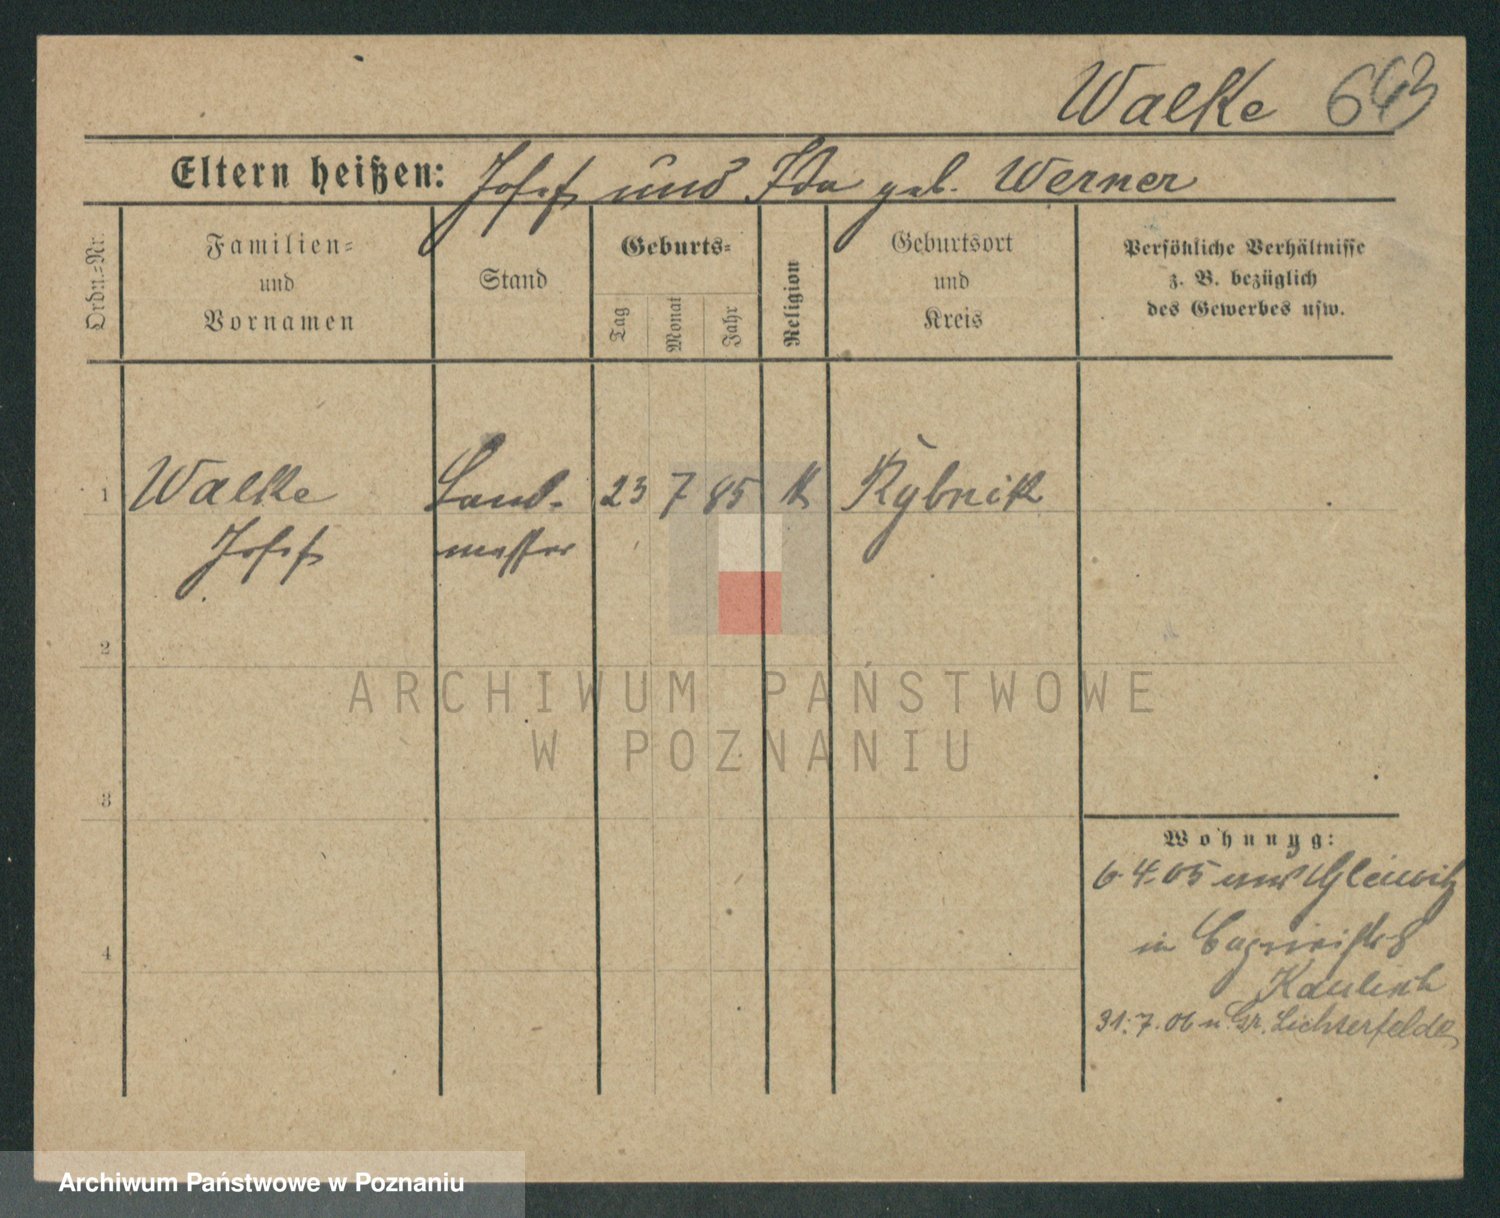 Walke 643
Eltern heißen: Josef und Ida geb. Werner
Ordn.-Nr.
Familien-
und
Vornamen
Stand
Geburts-
Tag
Monat
Jahr
Religion
Geburtsort
und
Kreis
Persönliche Verhältnisse
z. B. bezüglich
des Gewerbes usw.
1 Walke Land- 23 7 85 k Rybnik
Josef messer
2
ARCHIWUM PAŃSTWOWE
W POZNANIU
3
Wohnnyg:
6 4. 05 aus Gleiwitz
4
in 8
31. 7. 06 n. Gr. Lichterfelde
Archiwum Państwowe w Poznaniu